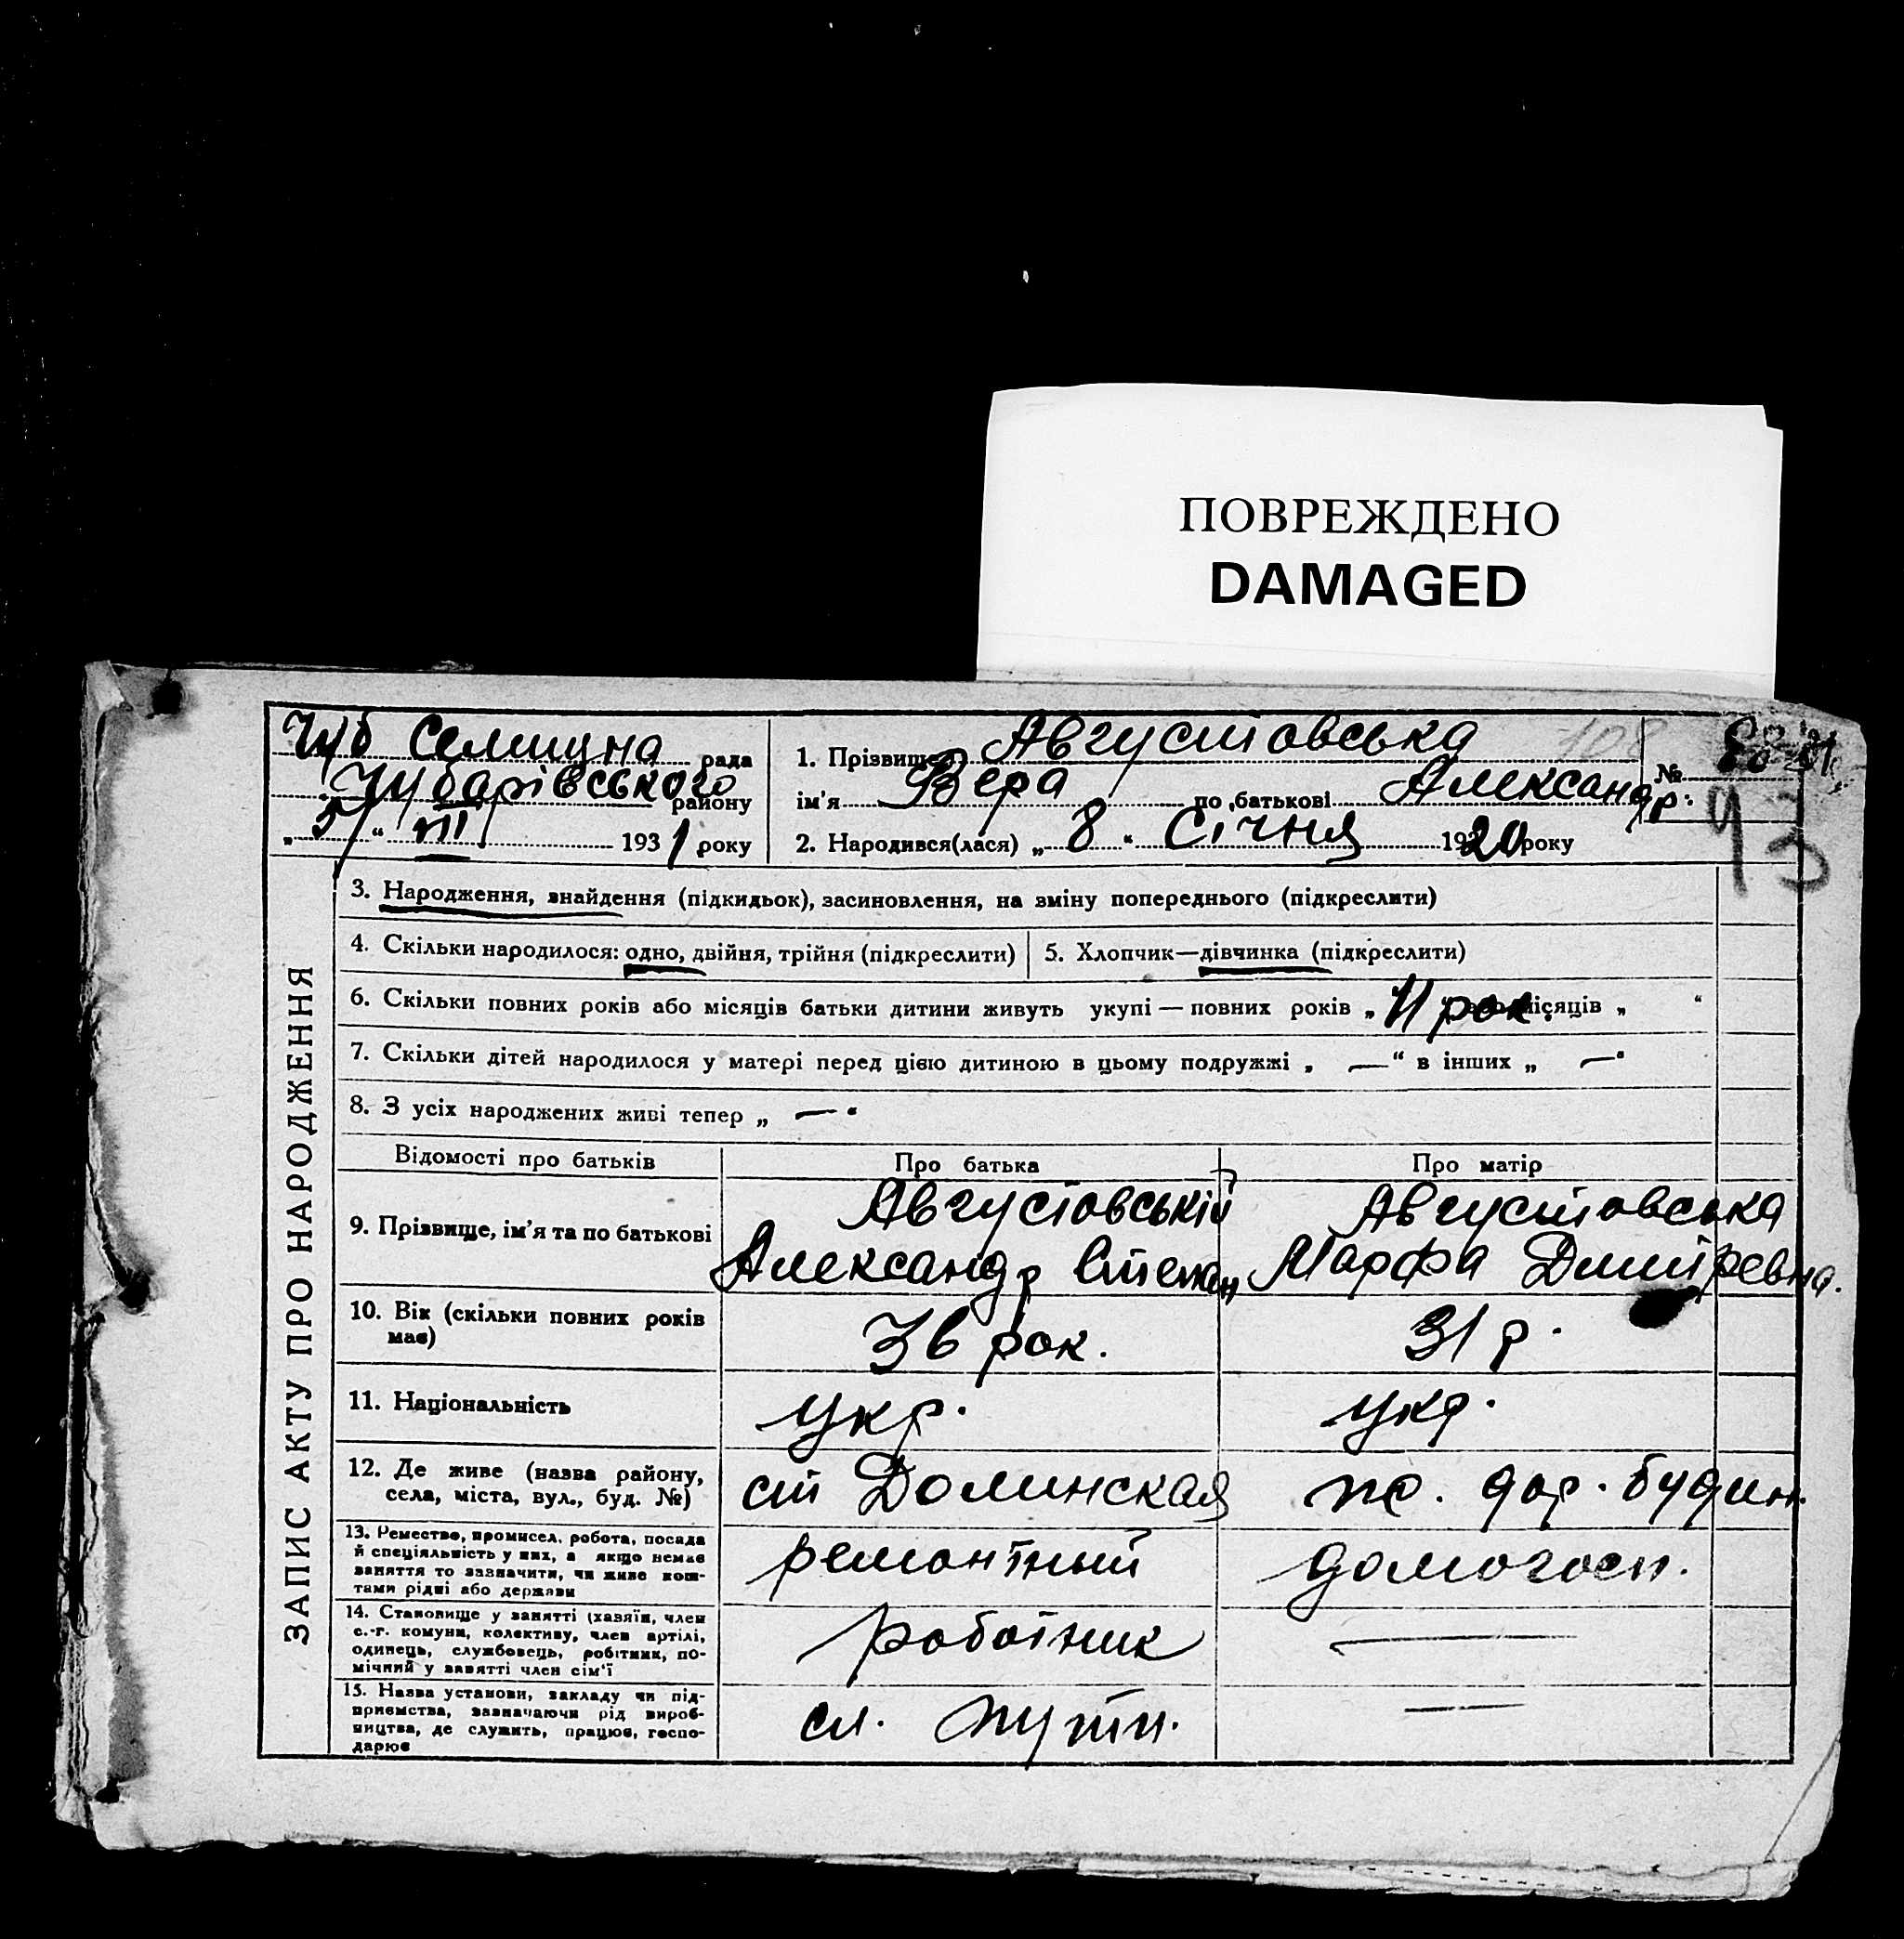 ПОВРЕЖДЕНО
DAMAGED
Чуб Селищна рада
Чубарівського району
„ 5 “ VIII 1931 року
1. Прізвище Августовська
ім'я Вера по батькові Александр.
2. Народився(лася) „ 8 “ Січня 1920 року
108
№
93
ЗАПИС АКТУ ПРО НАРОДЖЕННЯ
3. Народження, знайдення (підкидьок), засиновлення, на зміну попереднього (підкреслити)
4. Скільки народилося: одно, двійня, трійня (підкреслити)
5. Хлопчик—дівчинка (підкреслити)
6. Скільки повних років або місяців батьки дитини живуть укупі — повних років „ 11 рок. місяців „ “
7. Скільки дітей народилося у матері перед цією дитиною в цьому подружжі „ — “ в інших „ — “
8. З усіх народжених живі тепер „ — “
Відомості про батьків Про батька Про матір
9. Прізвище, ім'я та по батькові
Августовській
Александр Степан
Августовська
Марфа Дмитревна.
10. Вік (скільки повних років
має)
36 рок.
31 р.
11. Національність
укр.
укр.
12. Де живе (назва району,
села, міста, вул., буд. №)
ст Долинская
по. дор. будин.
13. Ремество, промисел, робота, посада
й спеціяльність у них, а якщо немає
заняття то зазначити, чи живе кош-
тами рідні або держави
ремонтний
домогосп.
14. Становище у занятті (хазяїн, член
с.-г. комуни, колективу, член артілі,
одинець, службовець, робітник, по-
мічний у занятті член сім'ї
роботник
—
15. Назва установи, закладу чи під-
приємства, зазначаючи рід вироб-
ництва, де служить, працює, госпо-
дарює
сл. пути.
—